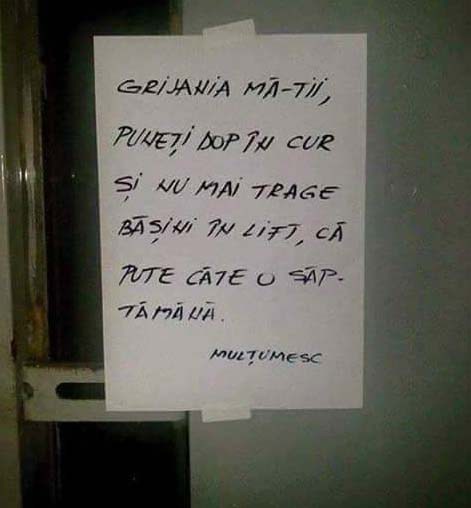 GRIJANIA MĂ-TII,
PUNEȚI DOP ÎN CUR
ȘI NU MAI TRAGE
BĂȘINI ÎN LIFT, CĂ
PUTE CÂTE O SĂP-
TĂMÂNĂ.
MULȚUMESC